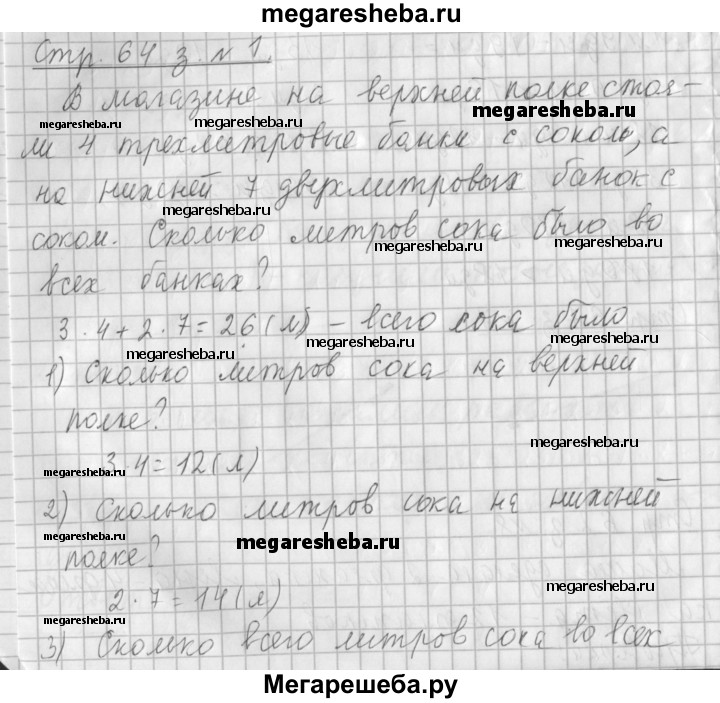 megaresheba.ru
Стр. 64 з. №1.
В магазине на верхней полке стоя-
megaresheba.ru
megaresheba.ru
megaresheba.ru
ли 4 трехлитровые банки с соком, а
на нижней 7 двухлитровых банок с
megaresheba.ru
соком. Сколько литров сока было во
megaresheba.ru
megaresheba.ru
всех банках?
3 · 4 + 2 · 7 = 26 (л) – всего сока было
megaresheba.ru
megaresheba.ru
1) Сколько литров сока на верхней
полке?
megaresheba.ru
megaresheba.ru
megaresheba.ru
3·4 = 12 (л)
2) Сколько литров сока на нижней
megaresheba.ru
megaresheba.ru
полке?
megaresheba.ru
2 · 7 = 14 (л)
megaresheba.ru
megaresheba.ru
3) Сколько всего литров сока во всех
Мегарешеба.ру